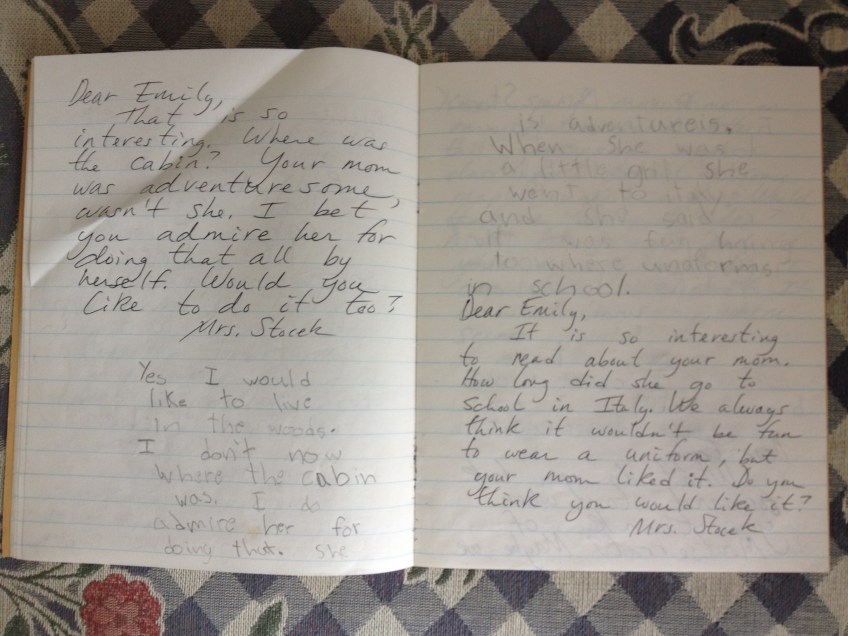 Dear Emily,
That is so
interesting. Where was
the cabin? Your mom
was adventuresome,
wasn't she. I bet
you admire her for
doing that all by
herself. Would you
like to do it too?
Mrs. Stocek
Yes I would
like to live
in the woods.
I don't now
where the cabin
was. I do
admire her for
doing that. she
is adventureis.
When she was
a little girl she
went to italy
and she said
it was fun having
to where unaforms
in school.
Dear Emily,
It is so interesting
to read about your mom.
How long did she go to
school in Italy. We always
think it wouldn't be fun
to wear a uniform, but
your mom liked it. Do you
think you would like it?
Mrs. Stocek